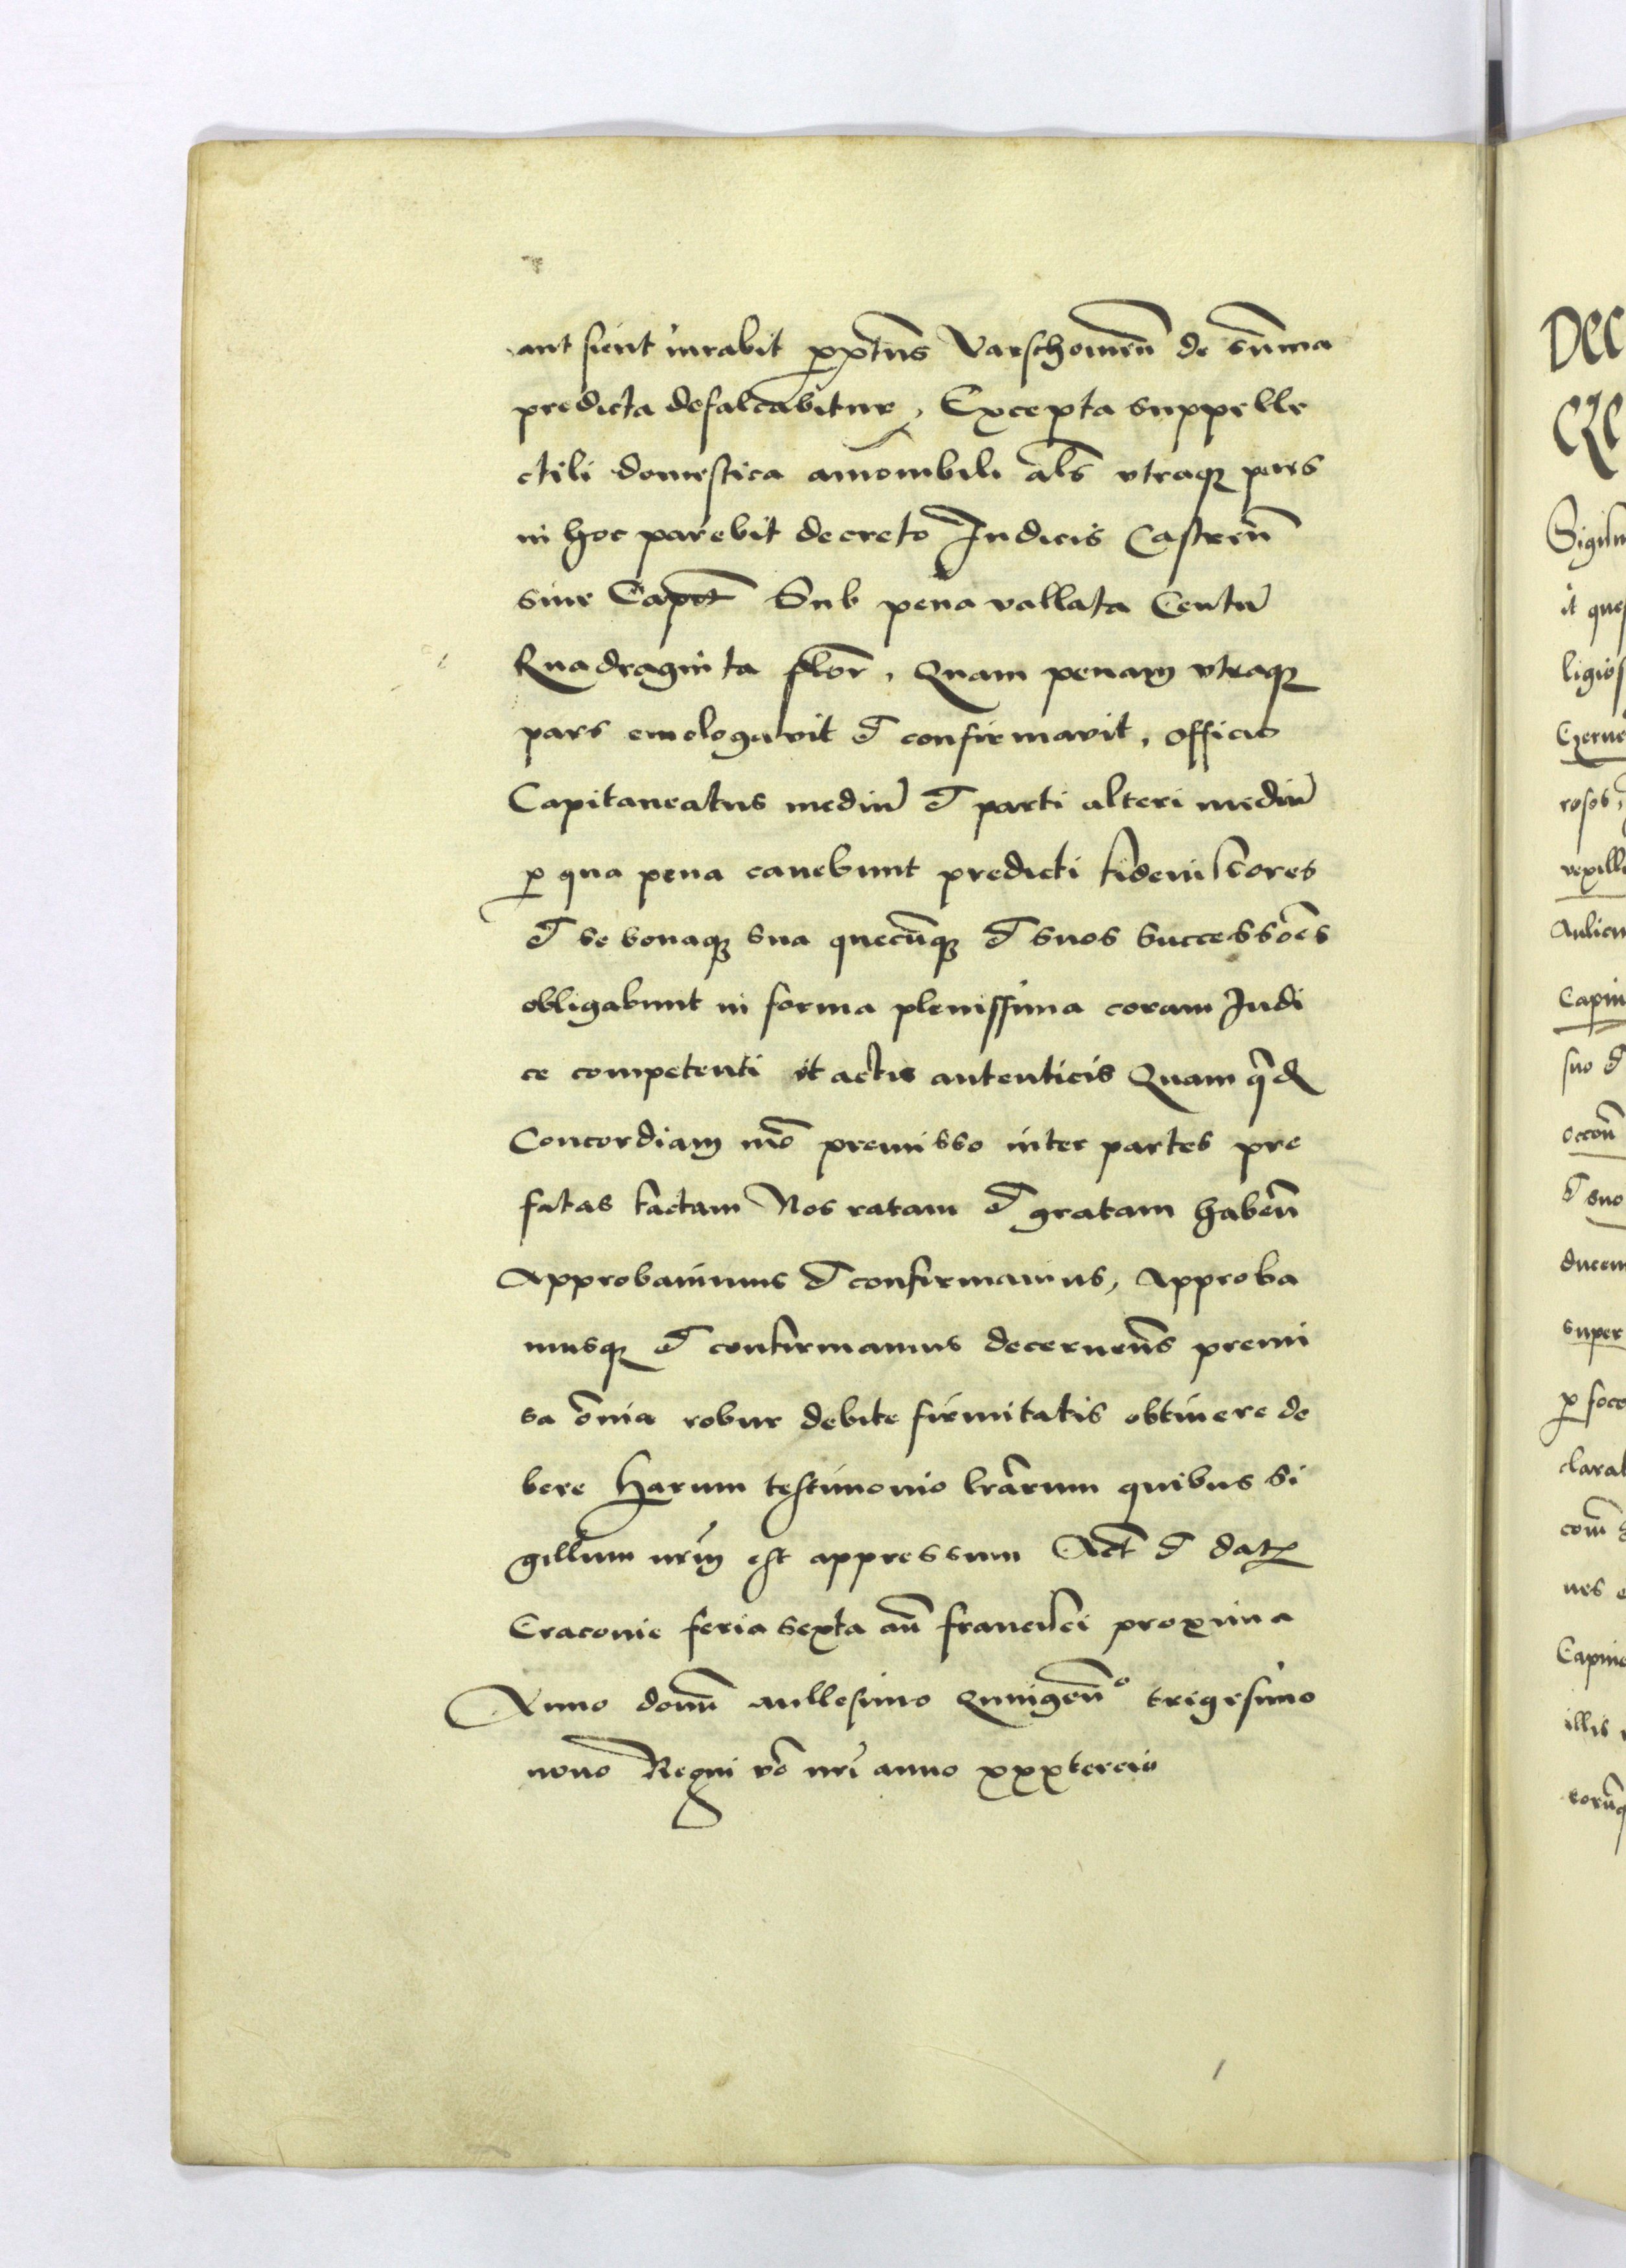 aut sicut iurabit p̱ptus Varschouieñ de sūma
predicta defalcabitur, Excepta suppelle
ctili domestica amouibili als̄ vtraqꝫ pars
in hoc parebit decreto Iudicis Castreñ
siue Capit̄ Sub pena vallata Centū
Quadraginta flor̄, Quam penam vtraqꝫ
pars emologavit et confirmavit, officio
Capitaneatus mediū et parti alteri mediū
p̱ qua pena cauebunt predicti fideiussores
et se bonaqꝫ sua quecūqꝫ et suos Successōes
obligabunt in forma plenissima coram Iudi
ce competenti et actis autenticis Quam qd̄
Concordiam mō premisso inter partes pre
fatas factam Nos ratam et gratam habeñ
Approbauimus et confirmauimus, Approba
musqꝫ et confirmamus decerneñs premi
sa ōnia robur debite firmitatis obtinere de
bere Harum testimonio lr̄arum quibus Si
gillum nrm̄ est appressum Act̄ et dat̄
Cracouie feria sexta añ francisci proxima
Anno domī millesimo Quingeñº trigesimo
nono Regni vō nrī anno xxxtercio
DEC
CRE
it ques
ligios
rosos,
vexilli
Aulicu
suo et
et suo
ducem
super
p̱ soce
clarab
nes
illis